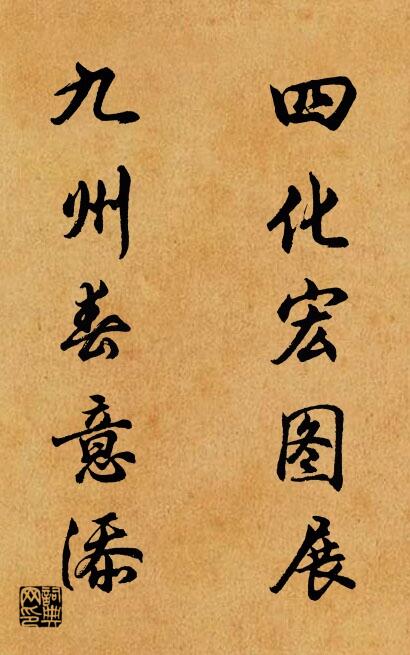 四化宏图展
九州春意添
詞典网印